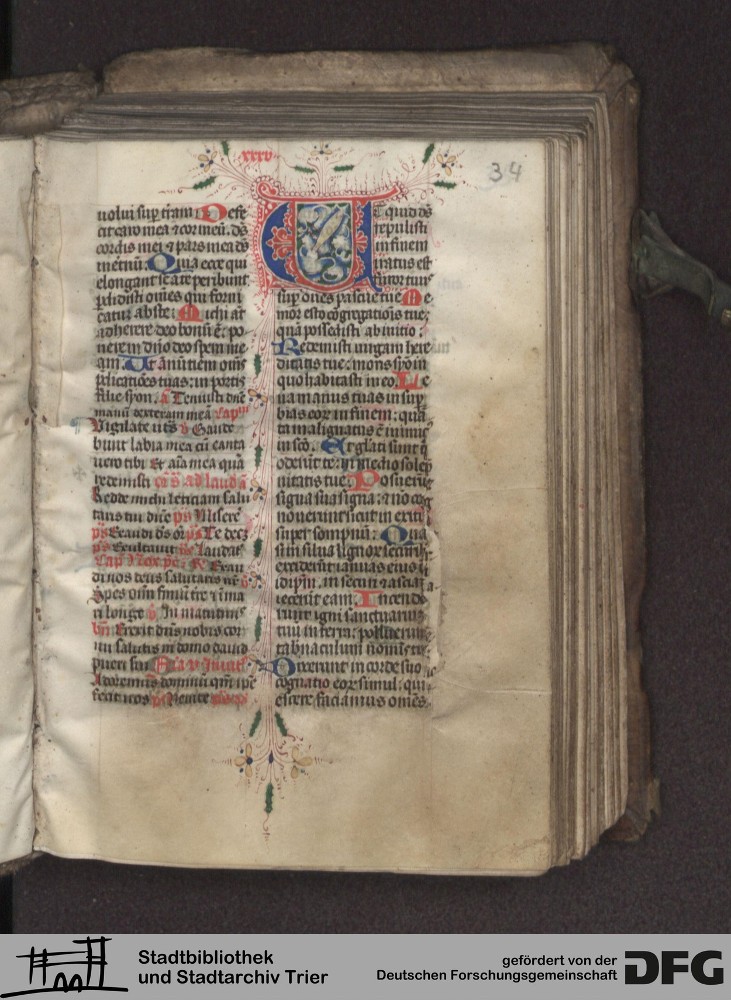 xxxv
34
uolui sup terram Defe
cit caro mea & cor meu. ds
cordis mei & pars mea ds
in etnu Quia ecce qui
elongant se a te peribunt
pdidisti omes qui forni
catur abste Michi at
adherere deo bonu e. po
nere in dno deo spem me
am. Ut anutiem oms
pdicatioes tuas: in portis
filie syon. a Tenuisti dne
manu dexteram mea Cap
Vigilate v Gaude
bunt labia mea cu canta
uero tibi & aia mea qua
redemisti ad laud a
Redde michi leticiam salu
taris tui dne ps Misere
ps Exaudi ds or ps Te dec
ps Exultauit Laudat
Cap Nox R Exau
di nos deus salutaris nr
Spes oim finiu tre & i ma
ri longe v In matutinis
Erexit dns nobis cor
nu salutis in domo dauid
pueri sui Inuit
Adoremus dominu qm ipe
fecit nos ps Venite
Ut quid ds
repulisti
in finem
iratus est
furor tuus
sup oues pascue tue Me
mor esto cogregatiois tue:
qua possedisti ab initio.
Redemisti uirgam here
ditatis tue: mons syon in
quo habitasti in eo. Le
ua manus tuas in sup
bias eor in finem: qua
ta malignatus e inimic
in sco. Et gliati sunt q
oderut te: in medio solep
nitatis tue. Posuerut
signa sua signa: & no cog
nouerunt sicut in exitu
super sompnu: Qua
si in silua lignor securib
exciderut ianuas eius i
idipm: in securi & ascia
iecerut eam. Incende
rut igni sanctuariu
tuu in terra: polluerut
tabnaculum nois tui
Dixerunt in corde suo
cognatio eor simul: qui
escere faciamus omes
Stadtbibliothek
und Stadtarchiv Trier
gefördert von der
Deutschen Forschungsgemeinschaft
DFG